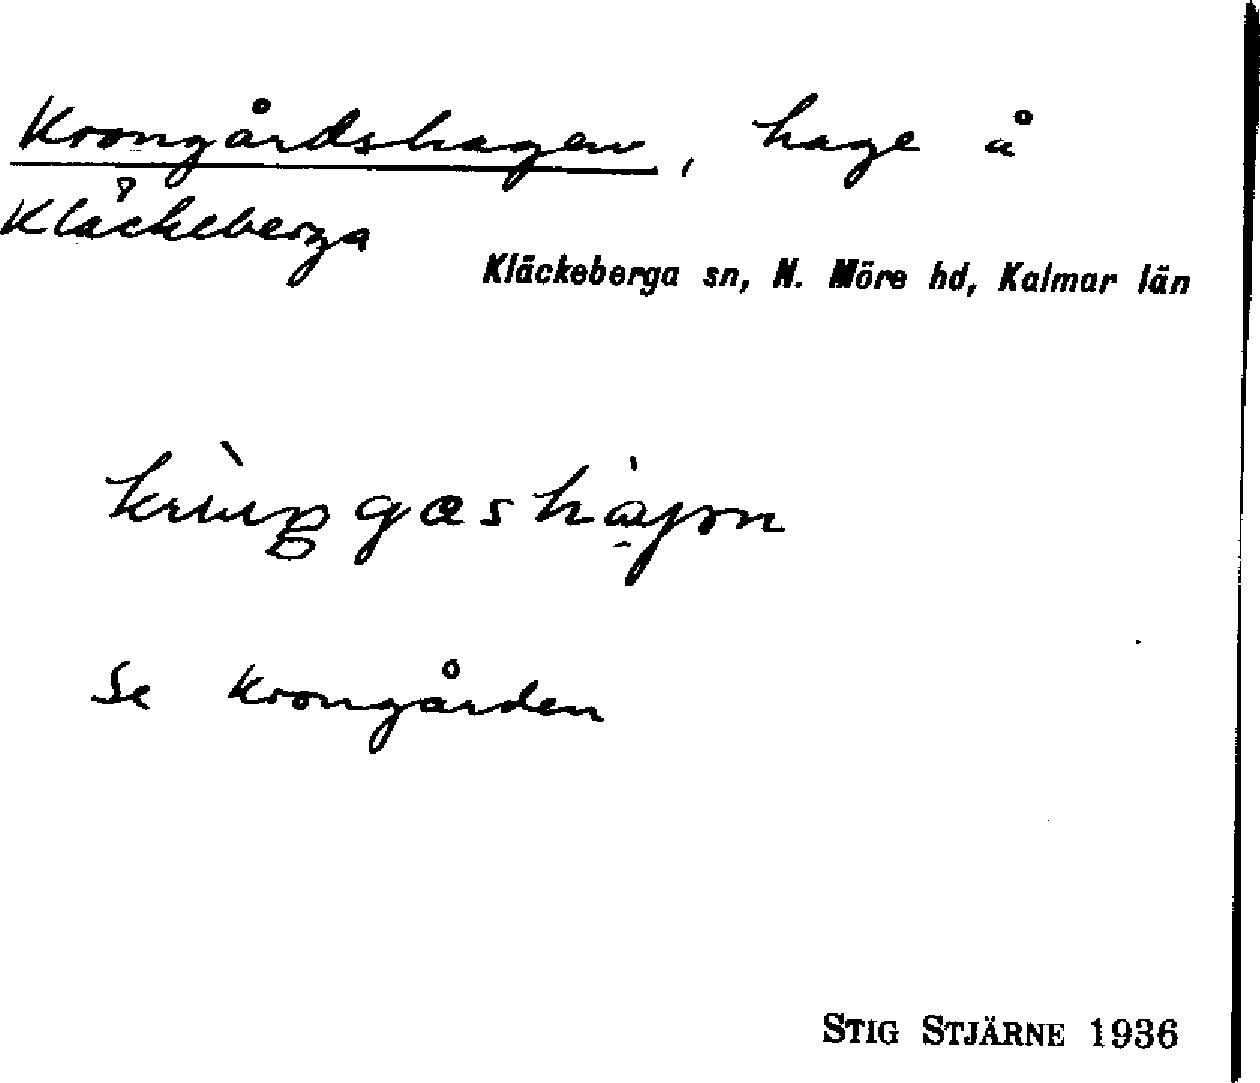 Krongårdshagen, hage å
Kläckeberga
Kläckeberga sn, N. Möre hd, Kalmar län
Se Krongården
STIG STJÄRNE 1936